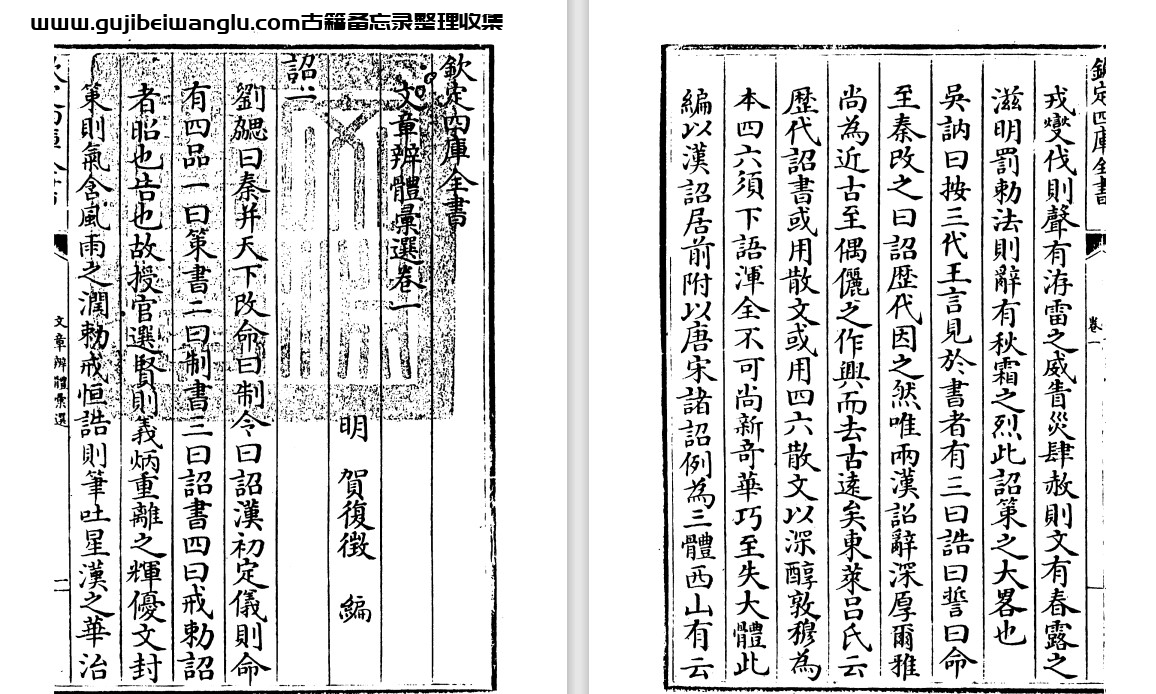 www.gujibeiwanglu.com古籍备忘录整理收集
欽定四庫全書
文章辨體彙選卷一
明 賀復徵 編
詔一
劉勰曰秦并天下改命曰制令曰詔漢初定儀則命
有四品一曰策書二曰制書三曰詔書四曰戒勅詔
者昭也告也故授官選賢則義炳重離之輝優文封
策則氣含風雨之潤勅戒恒誥則筆吐星漢之華治
文章辨體彙選
一
戎燮伐則聲有洊雷之威眚災肆赦則文有春露之
滋明罰勅法則辭有秋霜之烈此詔策之大畧也
吳訥曰按三代王言見於書者有三曰誥曰誓曰命
至秦改之曰詔歴代因之然唯兩漢詔辭深厚爾雅
尚為近古至偶儷之作興而去古遠矣東萊吕氏云
歴代詔書或用散文或用四六散文以深醇敦穆為
本四六須下語渾全不可尚新奇華巧至失大體此
編以漢詔居前附以唐宋諸詔例為三體西山有云
欽定四庫全書
卷一